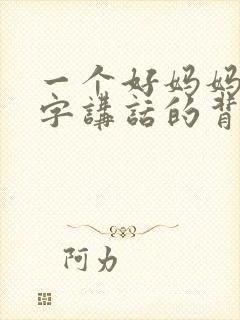 一个好妈妈
字講話的背
阿力